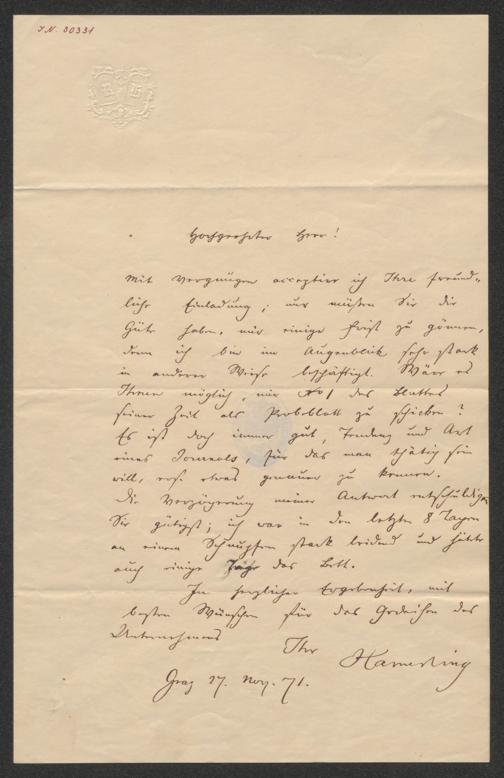 I.N. 30331
Hochgeehrter Herr!
Mit Vergnügen acceptire ich Ihre freund-
liche Einladung; nur müßen Sie die
Güte haben, mir einige Frist zu gönnen,
denn ich bin im Augenblick sehr stark
in anderer Weise beschäftigt. Wäre es
Ihnen möglich, mir No 1 des Blattes
seiner Zeit als Probeblatt zu schicken?
Es ist doch immer gut, Tendenz und Art
eines Journals, für das man thätig sein
will, erst etwas genauer zu kennen.
Die Verzögerung meiner Antwort entschuldigen
Sie gütigst; ich war in den letzten 8 Tagen
an einem Schnupfen stark leidend und hütete
auch einige Tage das Bett.
In herzlicher Ergebenheit, mit
besten Wünschen für das Gedeihen des
Unternehmens
Ihr
Hamerling
Graz 27. Nov. 71.